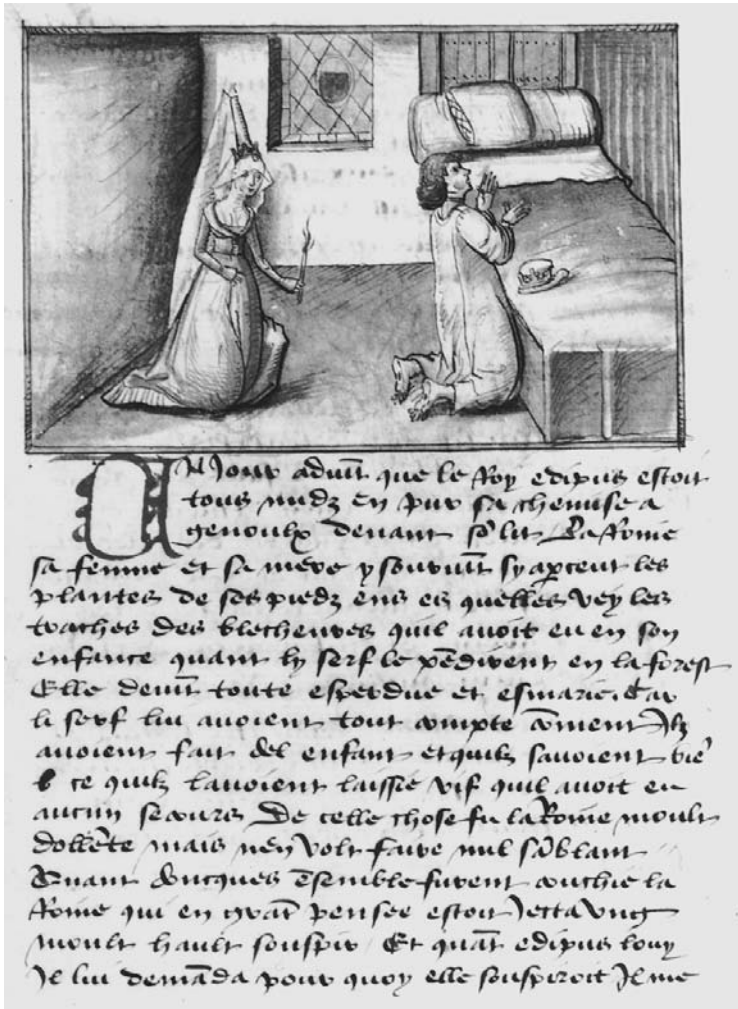 Un Jour aduīt que le Roy edipus estoit
tous nudz en pur sa chemise a
genoulx deuant sō lit La Roine
sa femme et sa mere y souruīt sy apceut les
plantes de ses piedz ens es quelles vey les
traches des blecheures quil auoit eu en son
enfance quant ly serf le pēdirent en la forest
Elle deuīt toute esperdue et esmarie Car
li serf lui auoient tout compte cōment Ilz
auoient fait del enfant et quilz sauoient biē
ce quilz lauoient laissie vif quil auoit eu
aucun secours De celle chose fu la Roine moult
dollēte mais nen volt faire nul sāblant
Quant doncques ēsemble furent couchie la
Roine qui en grāt pensee estoit Jetta vng
moult hault souspir Et quāt edipus louy
Il lui demāda pour quoy elle souspiroit Il me